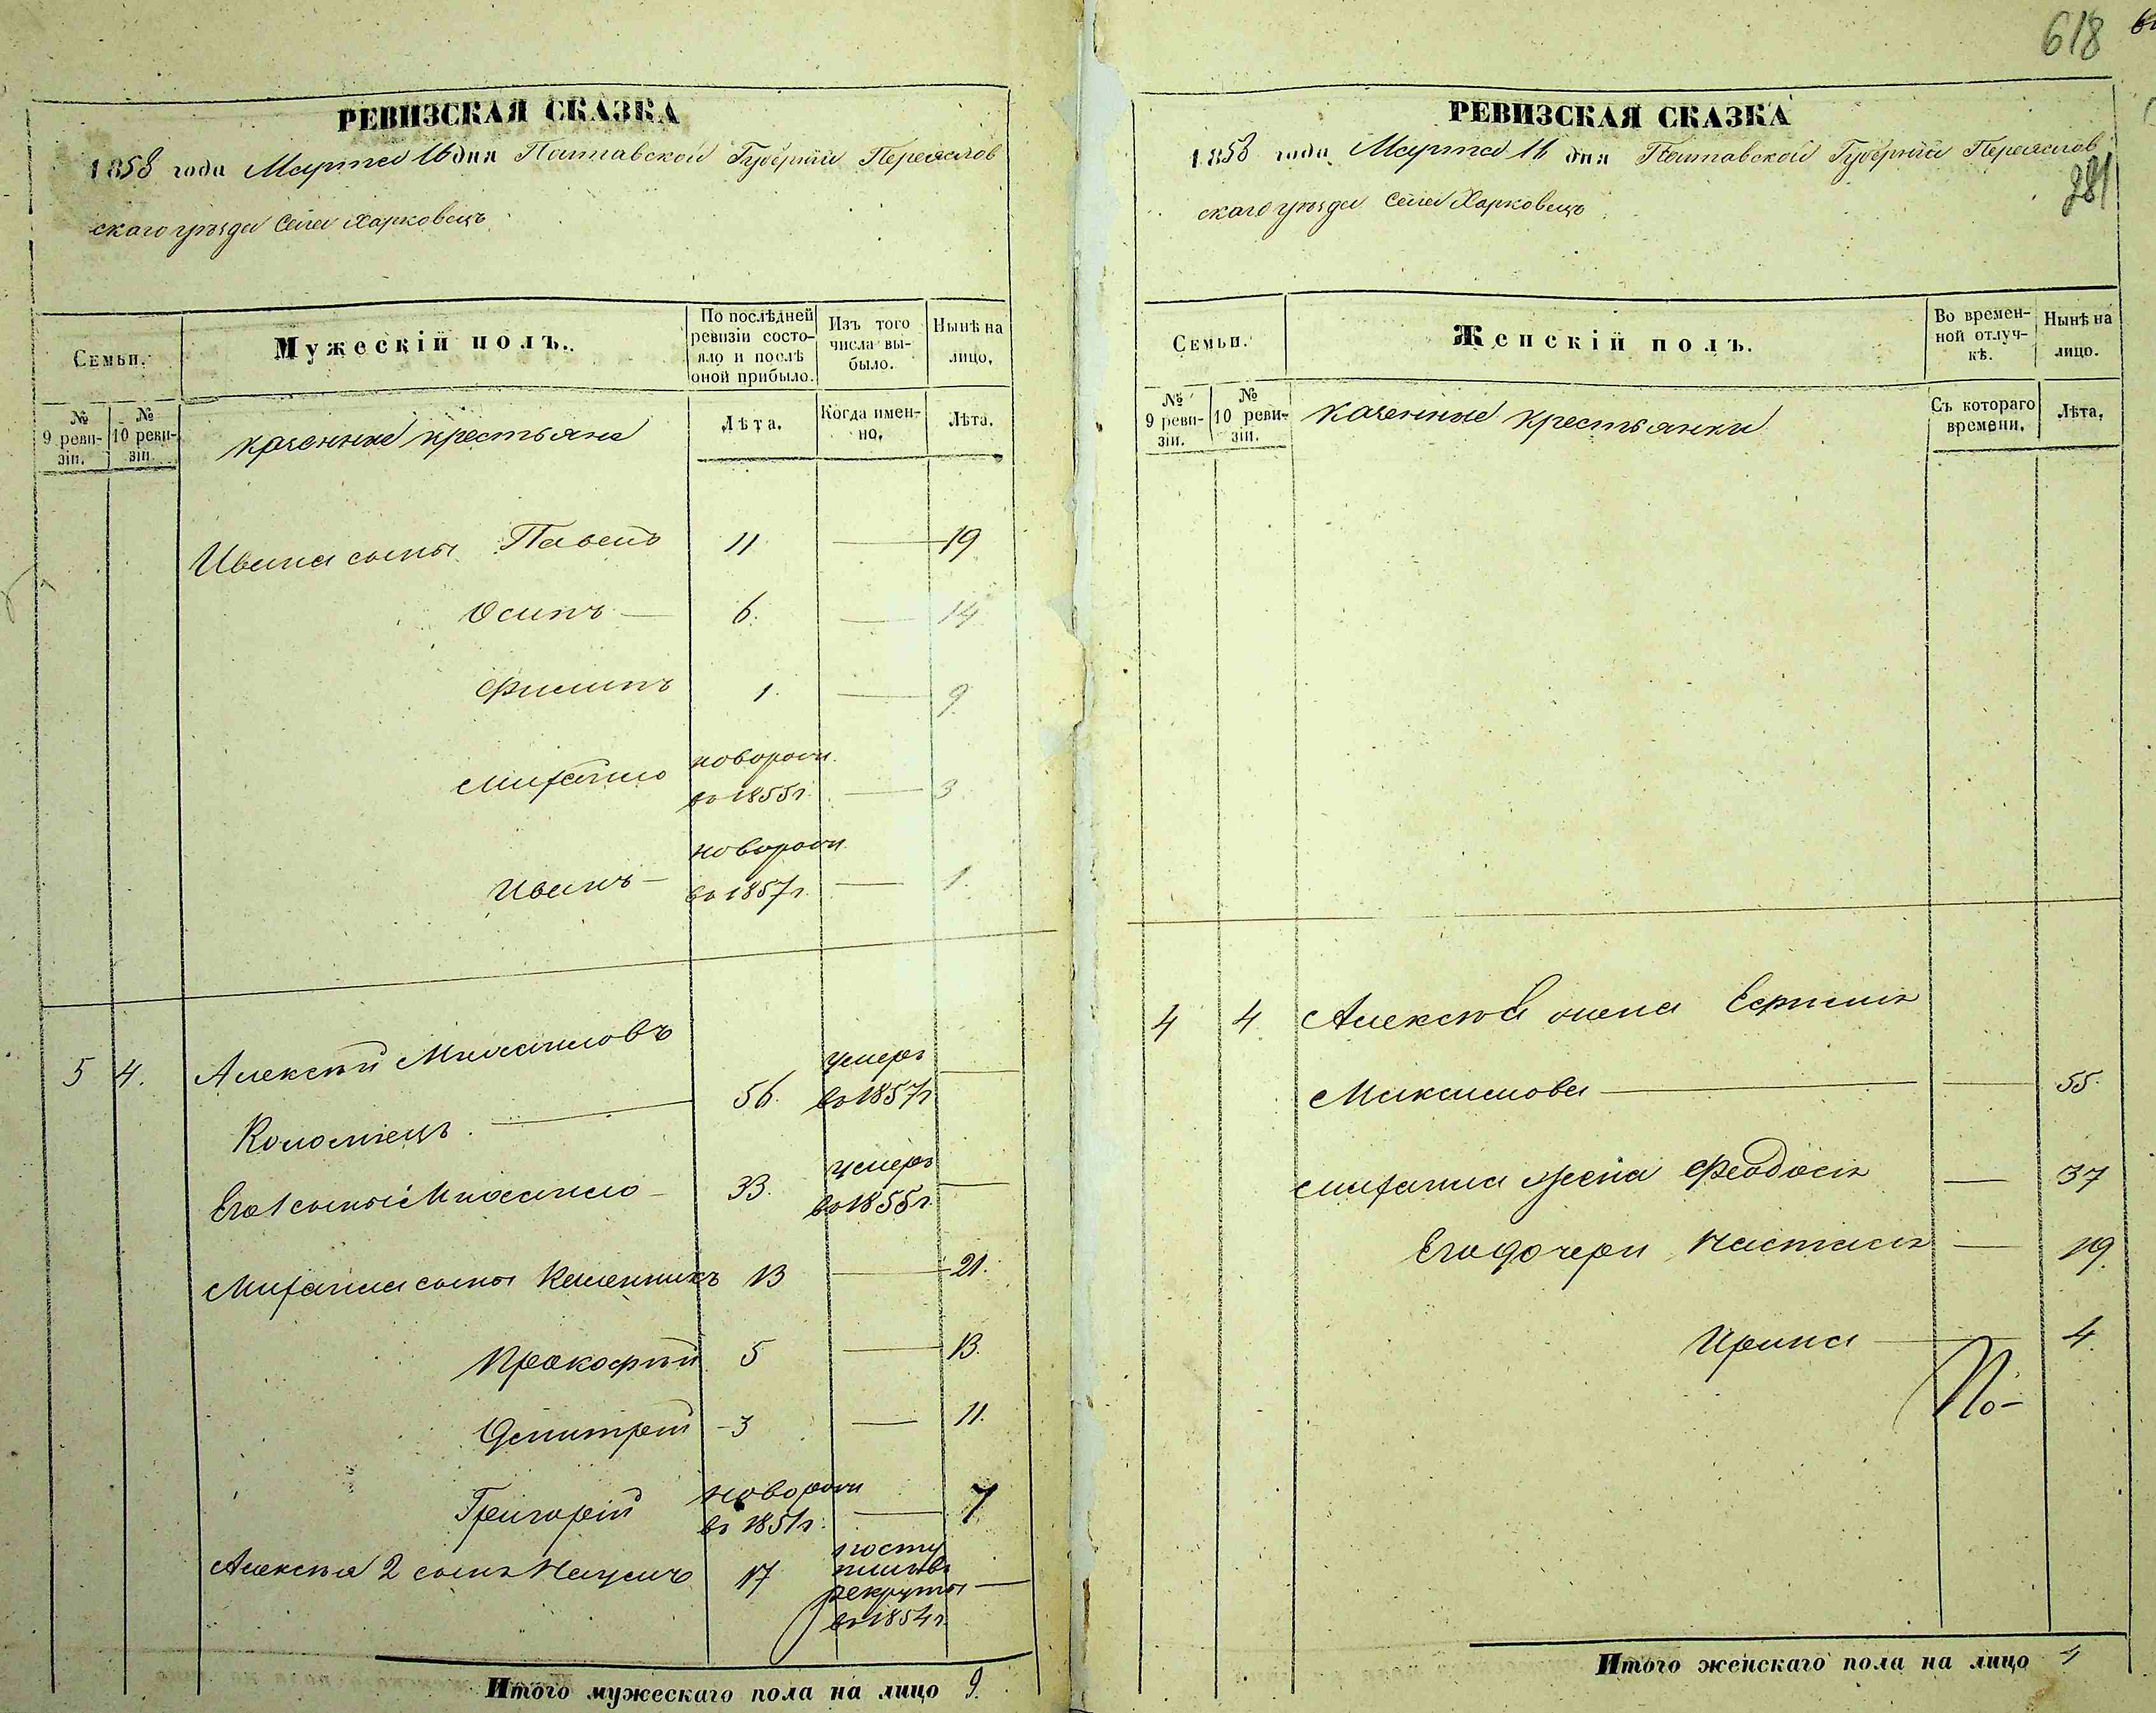 РЕВИЗСКАЯ СКАЗКА
1858 года Марта 16 дня Полтавской Губернии Переяслов
скаго уѣзда Села Харковецъ
Семьи.
Мужескій полъ.
По послѣдней ревизіи состояло и послѣ оной прибыло.
Изъ того числа выбыло.
Нынѣ на лицо.
№ 9 ревизіи.
№ 10 ревизіи.
казенные крестьяне
Лѣта.
Когда именно.
Лѣта.
Ивана сыны Павелъ 11 — 19
Осипъ — 6. — 14
Филипъ 1. — 9
новорожд.
Михайло въ 1855 г. — 3
новорожд.
Иванъ — въ 1857 г. — 1.
5 4. Алексѣй Михайловъ умеръ
56. въ 1857 г. —
Коломіецъ. —
Его 1 сынъ Михайло — 33. умеръ въ 1855 г. —
Михайла сыны Каленникъ 13 — 21.
Прокофій 5 — 13.
Дмитрій - 3 — 11.
Григорій новорожд въ 1851 г. — 7
Алексѣя 2 сынъ Наумъ 17 посту
пилъ въ
рекруты —
въ 1854 г.
Итого мужескаго пола на лицо 9.
618
РЕВИЗСКАЯ СКАЗКА
1858 года Марта 16 дня Полтавской Губернии Переяслов
281
скаго уѣзда Села Харковецъ
Семьи.
Женскій полъ.
Во временной отлучкѣ.
Нынѣ на лицо.
№ 9 ревизіи.
№ 10 ревизіи.
казенные крестьянки
Съ котораго времени.
Лѣта.
4 4 Алексѣя жена
Максимова — — 55.
Михайла жена Феодосія — 37
Его дочери Настасія — 19.
Ирина — 4.
По-
Итого женскаго пола на лицо 4